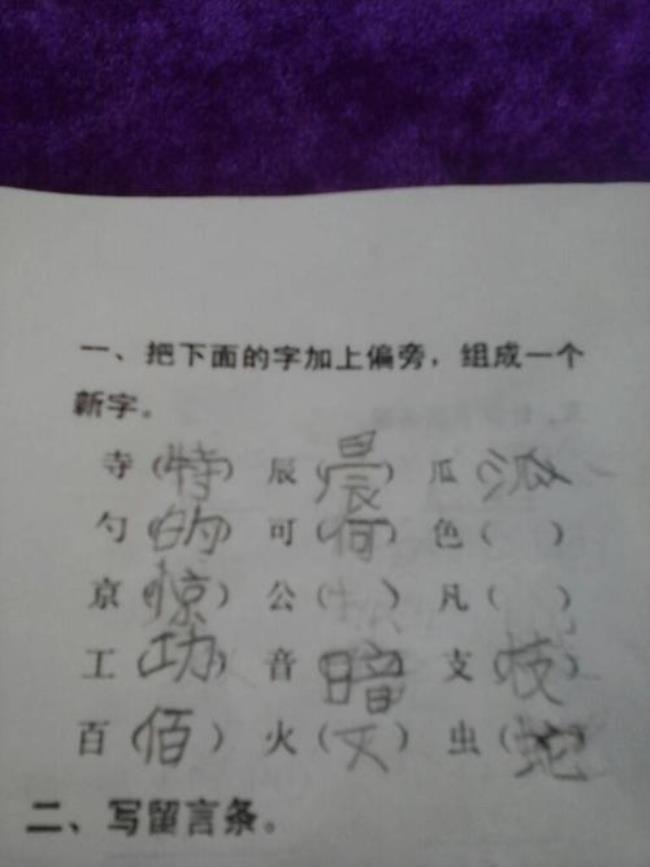 一、把下面的字加上偏旁，组成一个
新字。
寺（特） 辰（晨） 瓜（泒）
勺（的） 可（何） 色（ ）
京（惊） 公（ ） 凡（ ）
工（功） 音（暗） 支（技）
百（佰） 火（灭） 虫（蛇）
二、写留言条。